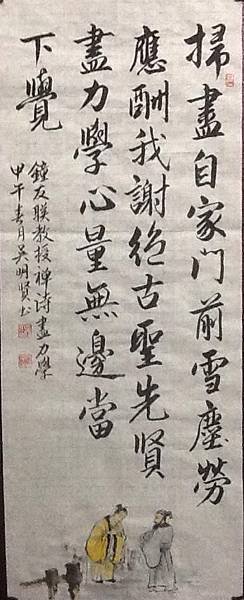 掃盡自家門前雪塵勞
應酬我謝絕古聖先賢
盡力學心量無邊當
下覺
鐘友聯教授禪诗盡力學
甲午春月吴明贤书